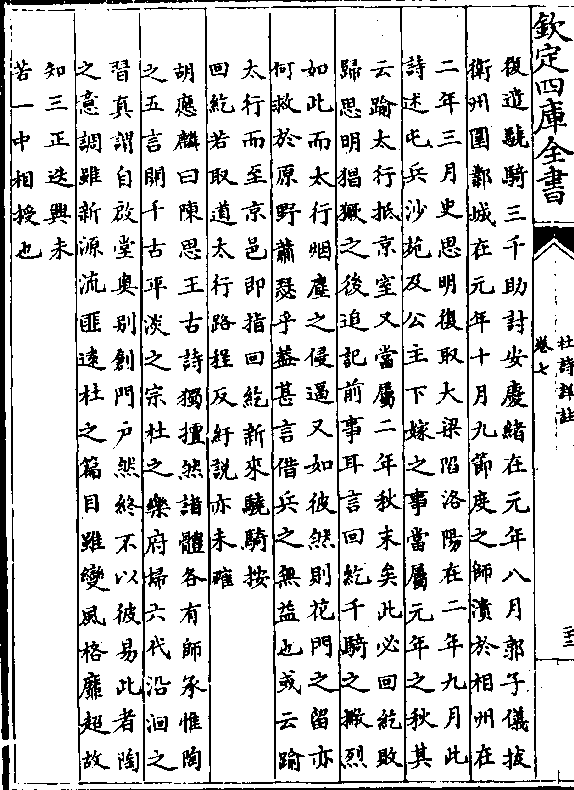 欽定四庫全書
杜詩詳註
卷七
復遣驍騎三千助討安慶緒在元年八月郭子儀拔
衛州圍鄴城在元年十月九節度之師潰於相州在
二年三月史思明復取大梁陷洛陽在二年九月此
詩述屯兵沙苑及公主下嫁之事當屬元年之秋其
云踰太行抵京室又當屬二年秋末矣此必回紇敗
歸思明猖獗之後追記前事耳言回紇千騎之撇烈
如此而太行烟塵之侵逼又如彼然則花門之留亦
何救於原野蕭瑟乎葢甚言借兵之無益也或云踰
太行而至京邑即指回紇新來驍騎按
回紇若取道太行路程反紆説亦未確
胡應麟曰陳思王古詩獨擅然諸體各有師承惟陶
之五言開千古平淡之宗杜之樂府掃六代沿洄之
習真謂自啟堂奥别創門户然終不以彼易此者陶
之意調雖新源流匪遠杜之篇目雖變風格靡超故
知三正迭興未
若一中相授也